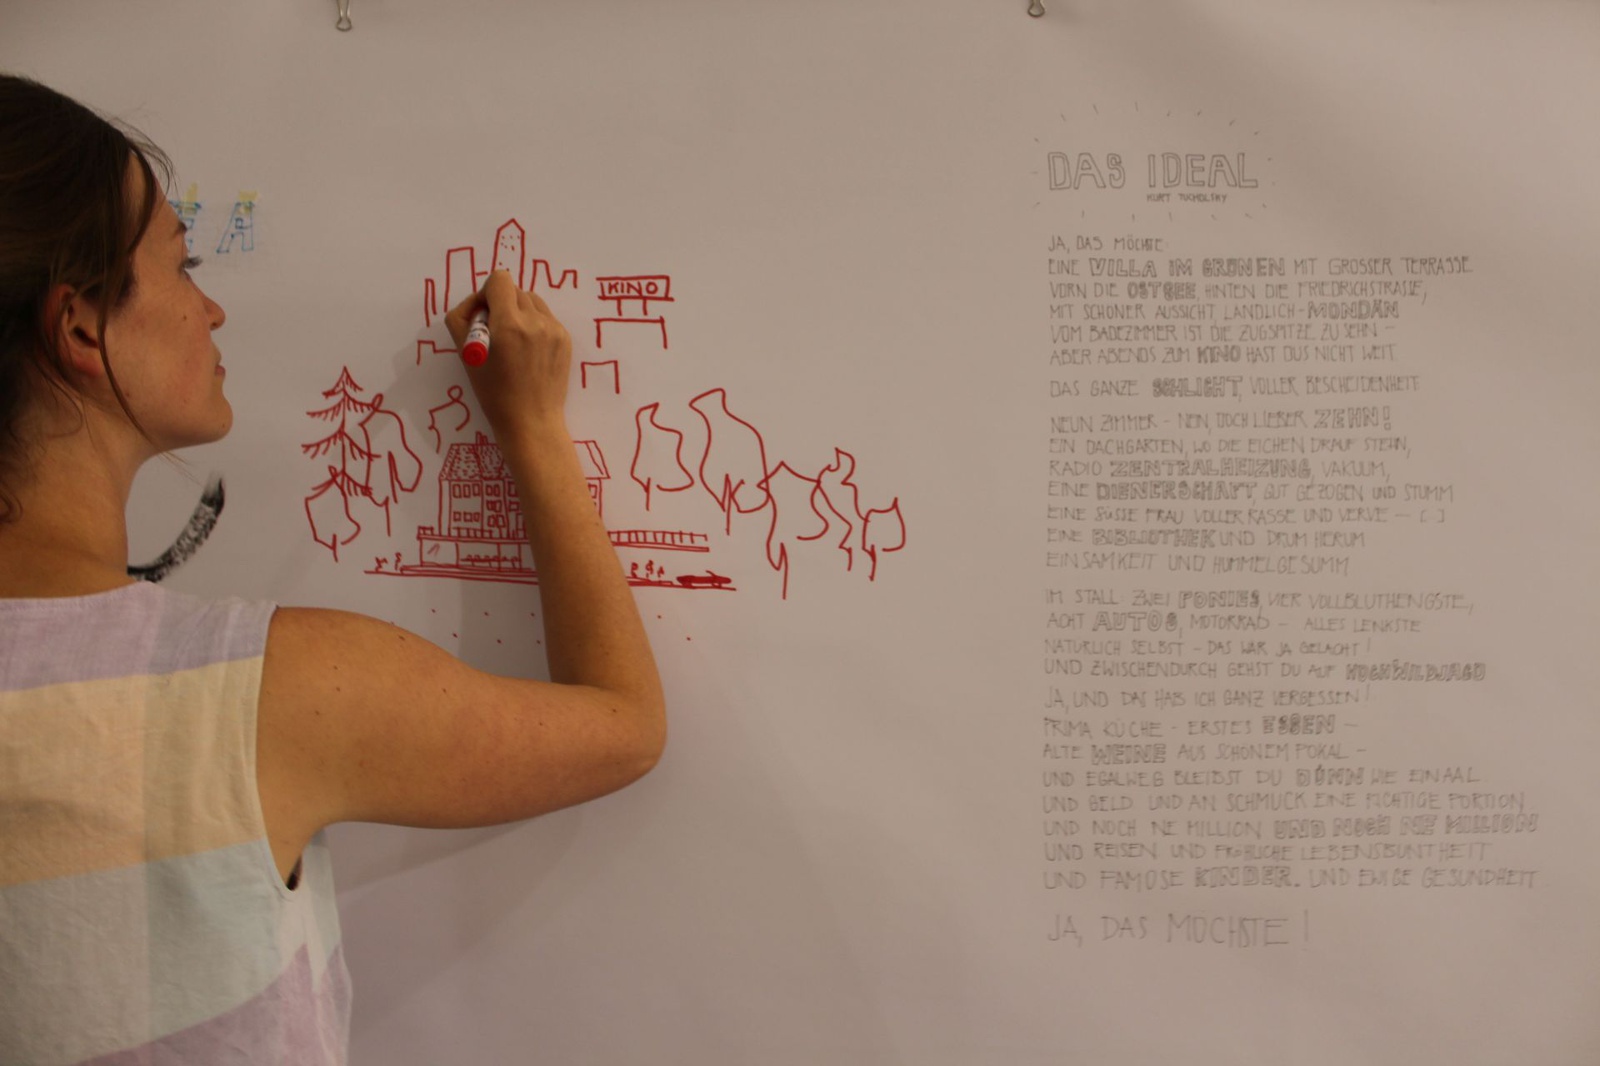 EA
KINO
DAS IDEAL
KURT TUCHOLSKY
JA, DAS MÖCHTE:
EINE VILLA IM GRÜNEN MIT GROSSER TERRASSE
VORN DIE OSTSEE, HINTEN DIE FRIEDRICHSTRASSE,
MIT SCHÖNER AUSSICHT, LÄNDLICH-MONDÄN
VOM BADEZIMMER IST DIE ZUGSPITZE ZU SEHN -
ABER ABENDS ZUM KINO HAST DUS NICHT WEIT.
DAS GANZE SCHLICHT, VOLLER BESCHEIDENHEIT
NEUN ZIMMER - NEIN, DOCH LIEBER ZEHN!
EIN DACHGARTEN, WO DIE EICHEN DRAUF STEHN,
RADIO ZENTRALHEIZUNG, VAKUUM,
EINE DIENERSCHAFT, GUT GEZOGEN UND STUMM
EINE SÜSSE FRAU VOLLER RASSE UND VERVE - (..)
EINE BIBLIOTHEK UND DRUM HERUM
EINSAMKEIT UND HUMMELGESUMM
IM STALL: ZWEI PONIES, VIER VOLLBLUTHENGSTE,
ACHT AUTOS, MOTORRAD - ALLES LENKSTE
NATÜRLICH SELBST - DAS WÄR JA GELACHT!
UND ZWISCHENDURCH GEHST DU AUF HOCHWILDJAGD
JA, UND DAS HAB ICH GANZ VERGESSEN!
PRIMA KÜCHE - ERSTES ESSEN -
ALTE WEINE AUS SCHÖNEM POKAL -
UND EGALWEG BLEIBST DU DÜNN WIE EIN AAL.
UND GELD. UND AN SCHMUCK EINE RICHTIGE PORTION.
UND NOCH NE MILLION UND NOCH NE MILLION
UND REISEN. UND FRÖHLICHE LEBENSBUNTHEIT
UND FAMOSE KINDER. UND EWIGE GESUNDHEIT
JA, DAS MÖCHSTE!